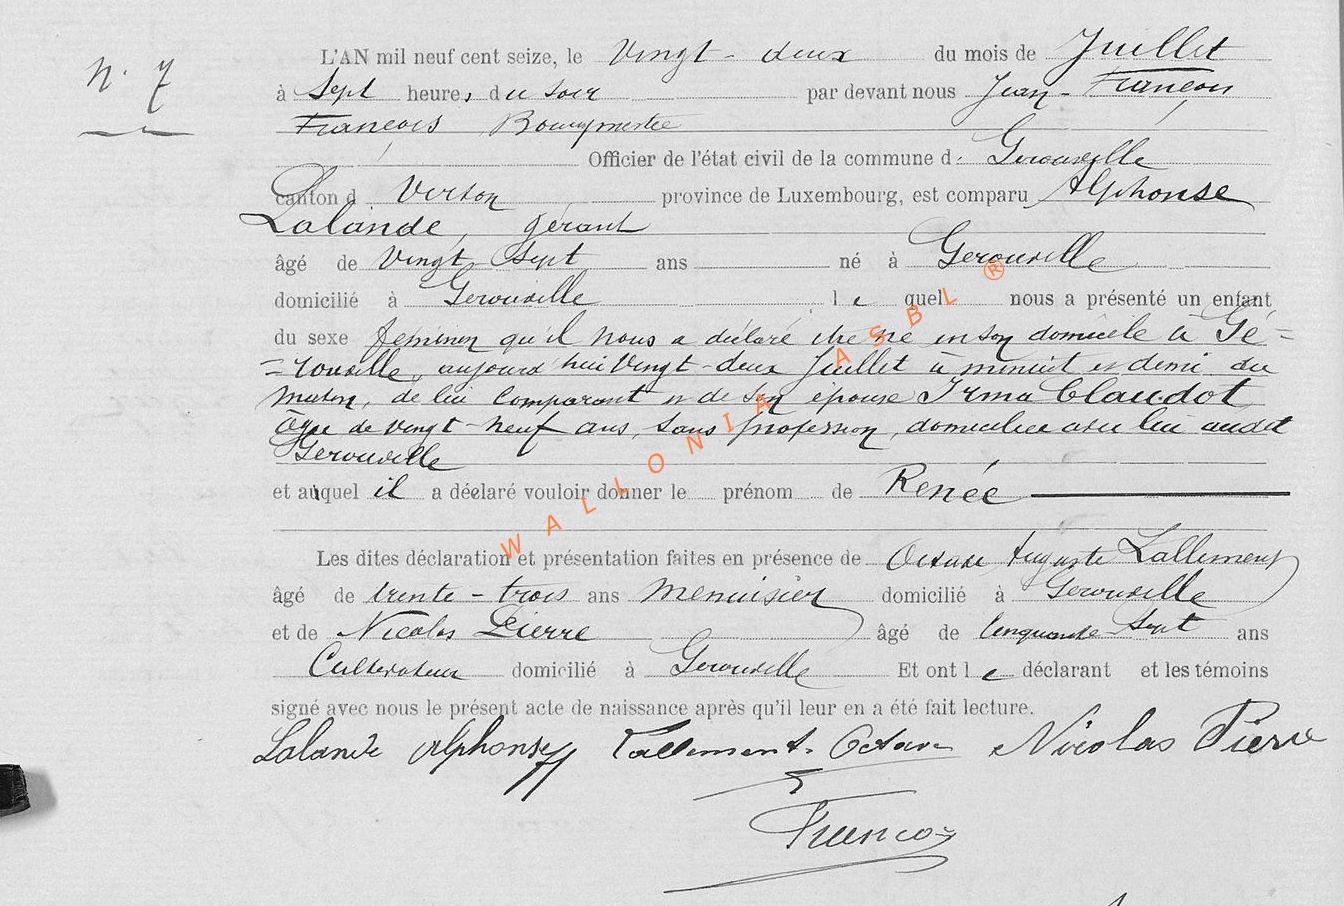 N. 7
L'AN mil neuf cent seize, le Vingt-deux du mois de Juillet
à Sept heures du soir par devant nous Jean-François
François Bourgmestre
Officier de l'état civil de la commune d. Gérouville
canton d Virton province de Luxembourg, est comparu Alphonse
Lalande, gérant
âgé de Vingt Sept ans né à Gérouville
domicilié à Gerouville le quel nous a présenté un enfant
du sexe féminin qu'il nous a déclaré être né en son domicile à Gé=
=rouville, aujourd'hui Vingt-deux Juillet à minuit et demi du
matin, de lui comparant et de son épouse Irma Claudot
âgée de vingt-neuf ans, sans profession, domiciliée avec lui audit
Gerouville
et auquel il a déclaré vouloir donner le prénom de Renée
Les dites déclaration et présentation faites en présence de Octave Auguste Lallement
âgé de trente-trois ans menuisier domicilié à Gerouville
et de Nicolas Pierre âgé de cinquante Sept ans
Cultivateur domicilié à Gerouville Et ont le déclarant et les témoins
signé avec nous le présent acte de naissance après qu'il leur en a été fait lecture.
Lalande Alphonse Lallement Octave Nicolas Pierre
François
WALLONIA ASBL ®